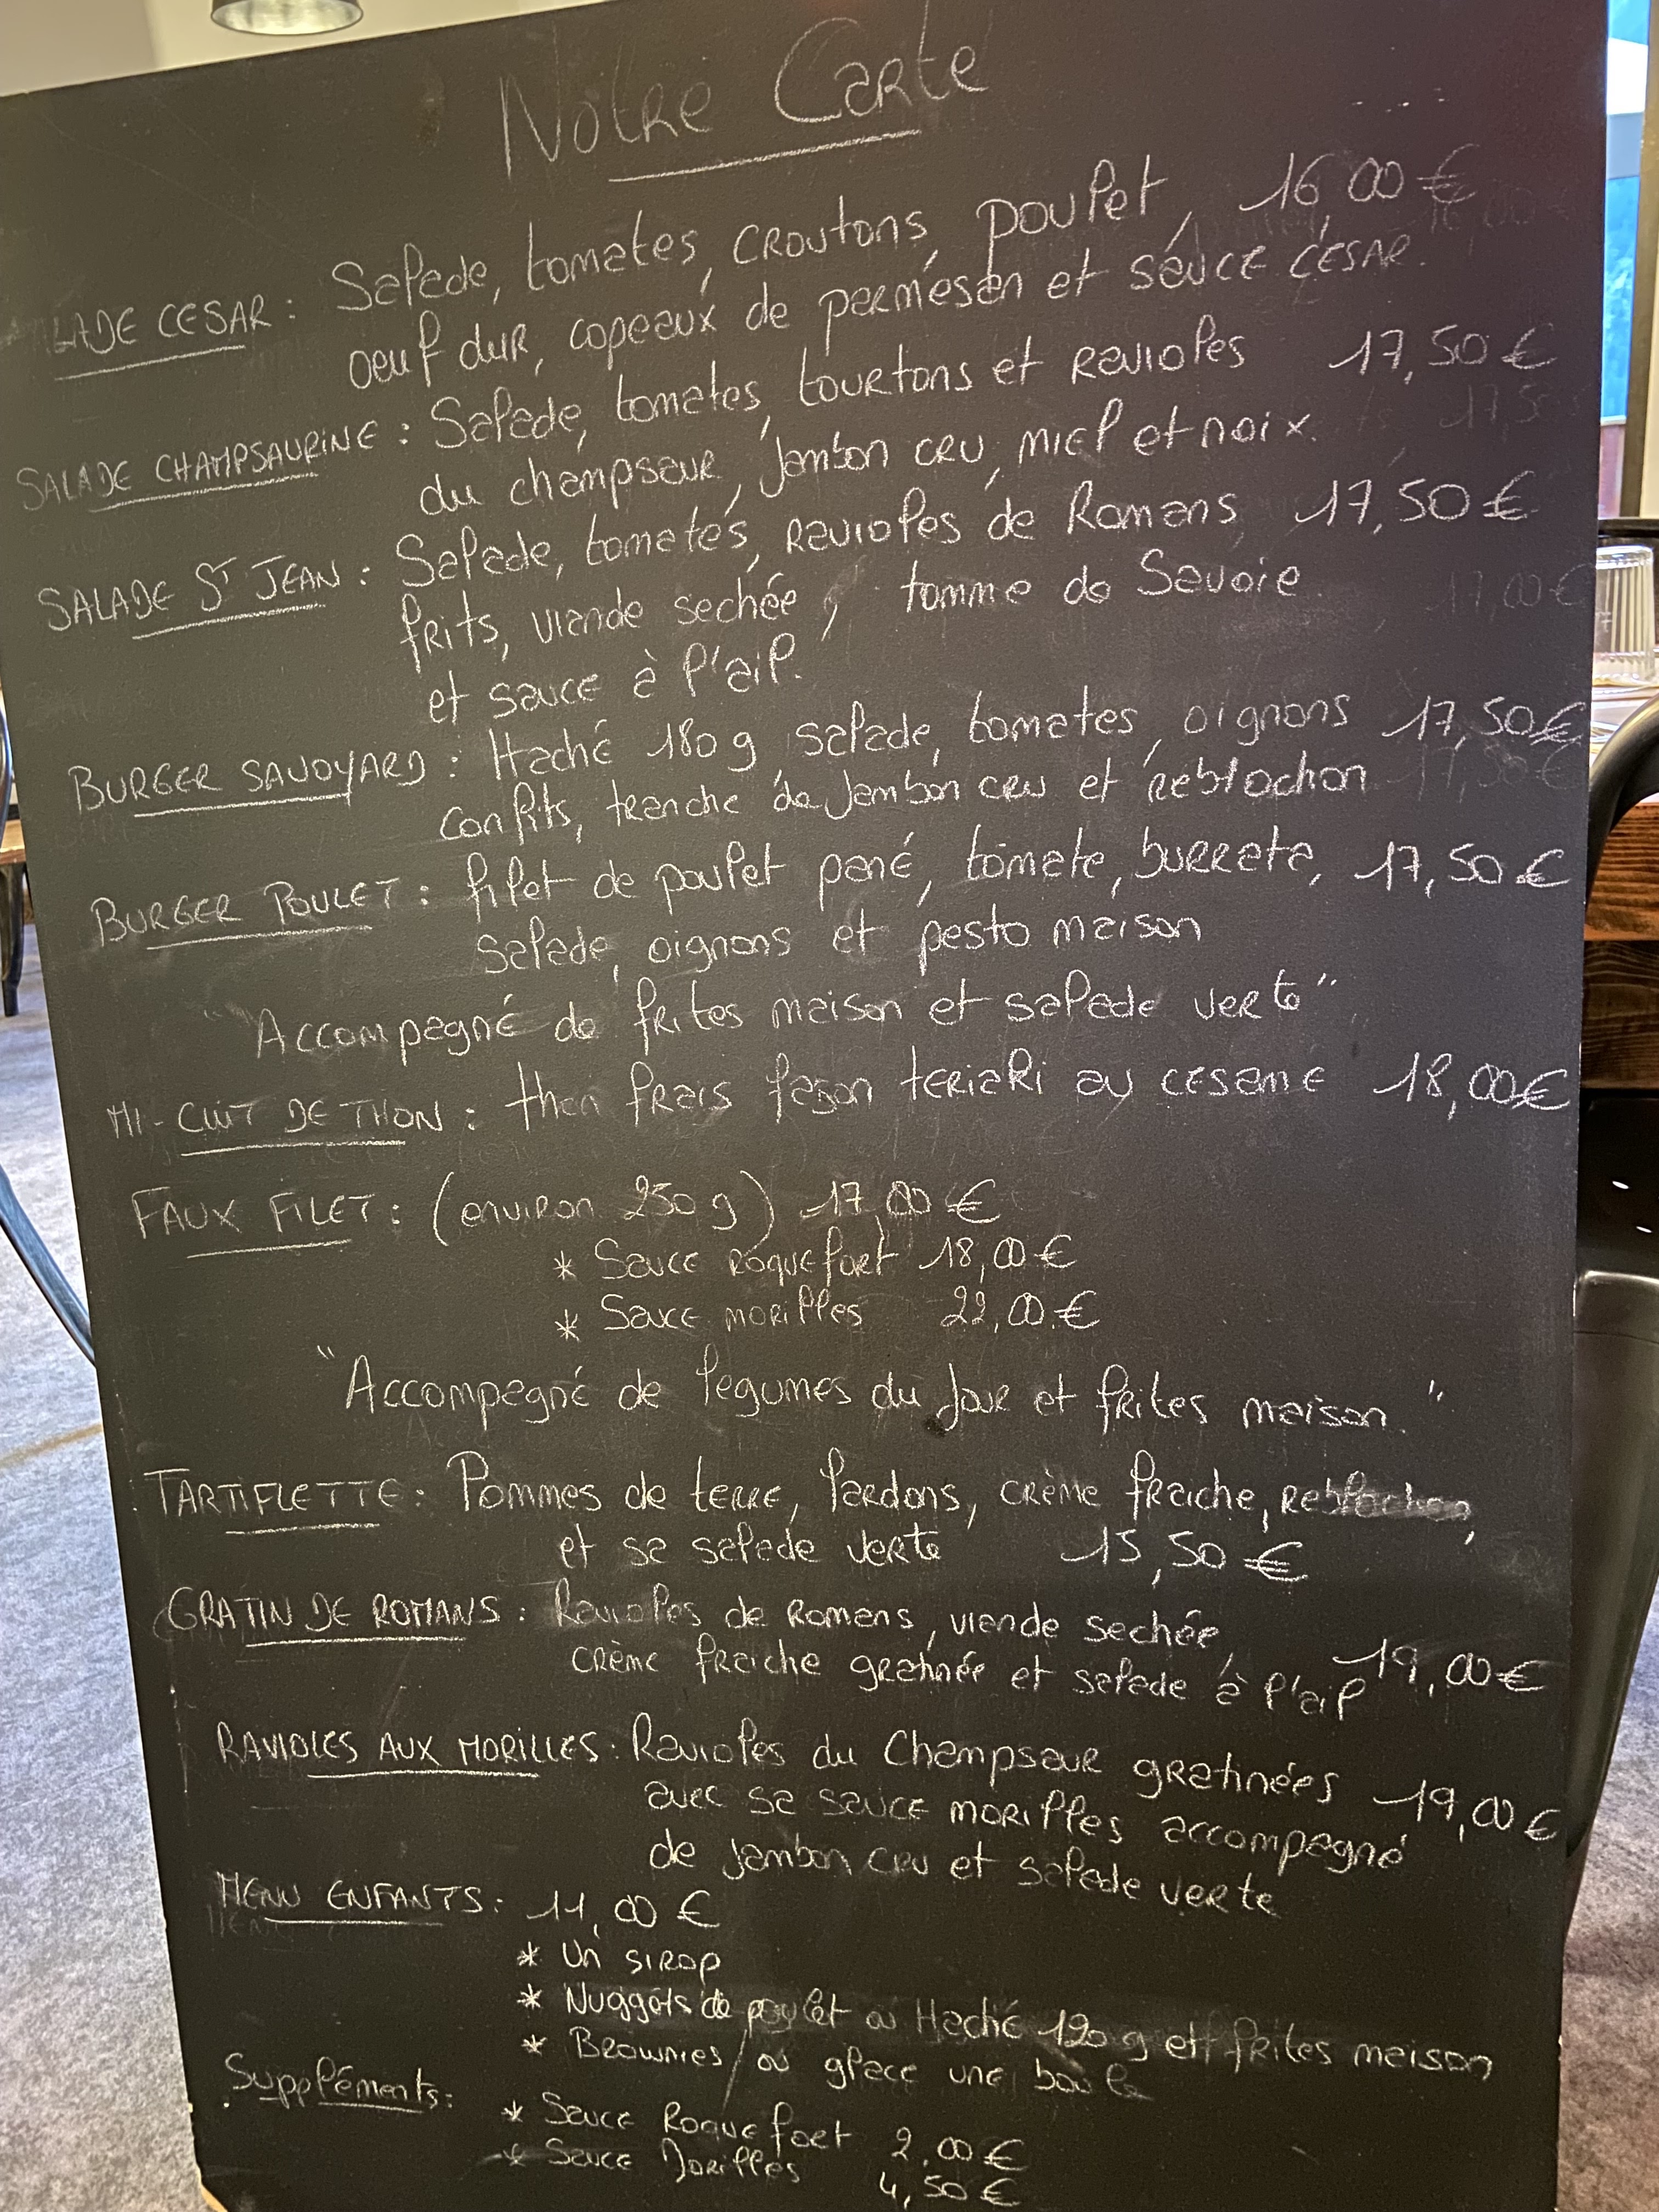 Notre Carte
LADE CESAR : Salade, tomates, croutons, poulet, 16,00 €
oeuf dur, copeaux de parmésan et sauce césar.
SALADE CHAMPSAURINE : Salade, tomates, tourtons et ravioles 17,50 €
du champsaur, jambon cru, miel et noix.
SALADE ST JEAN : Salade, tomates, ravioles de Romans 17,50 €
frits, viande sechée, tomme de Savoie
et sauce à l'ail.
BURGER SAVOYARD : Haché 180 g salade, tomates, oignons 17,50 €
confits, tranche de jambon cru et reblochon
BURGER POULET : filet de poulet pané, tomate, burrata, 17,50 €
salade, oignons et pesto maison
"Accompagné de frites maison et salade verte"
MI-CUIT DE THON : thon frais façon teriaki au cesame 18,00 €
FAUX FILET : (environ 250 g) 17,00 €
* Sauce roquefort 18,00 €
* Sauce morilles 22,00 €
"Accompagné de légumes du jour et frites maison."
TARTIFLETTE : Pommes de terre, lardons, crème fraiche, reblochon,
et sa salade verte 15,50 €
GRATIN DE ROMANS : Ravioles de Romans, viande sechée,
crème fraiche gratinée et salade à l'ail 19,00 €
RAVIOLES AUX MORILLES : Ravioles du Champsaur gratinées 19,00 €
avec sa sauce morilles accompagné
de jambon cru et salade verte
MENU ENFANTS : 11,00 €
* Un sirop
* Nuggets de poulet ou Haché 120 g et frites maison
* Brownies / ou glace une boule
Suppléments :
* Sauce Roquefort 2,00 €
* Sauce Morilles 4,50 €